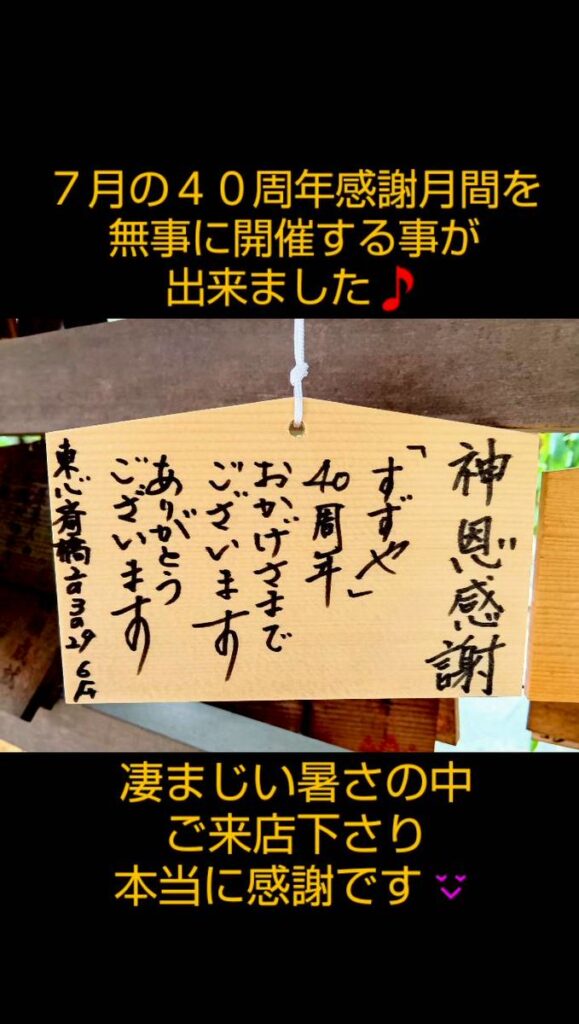 ７月の４０周年感謝月間を
無事に開催する事が
出来ました♪
神恩感謝
「すずや」
40周年
おかげさまで
ございます
ありがとう
ございます
東心斎橋
凄まじい暑さの中
ご来店下さり
本当に感謝です